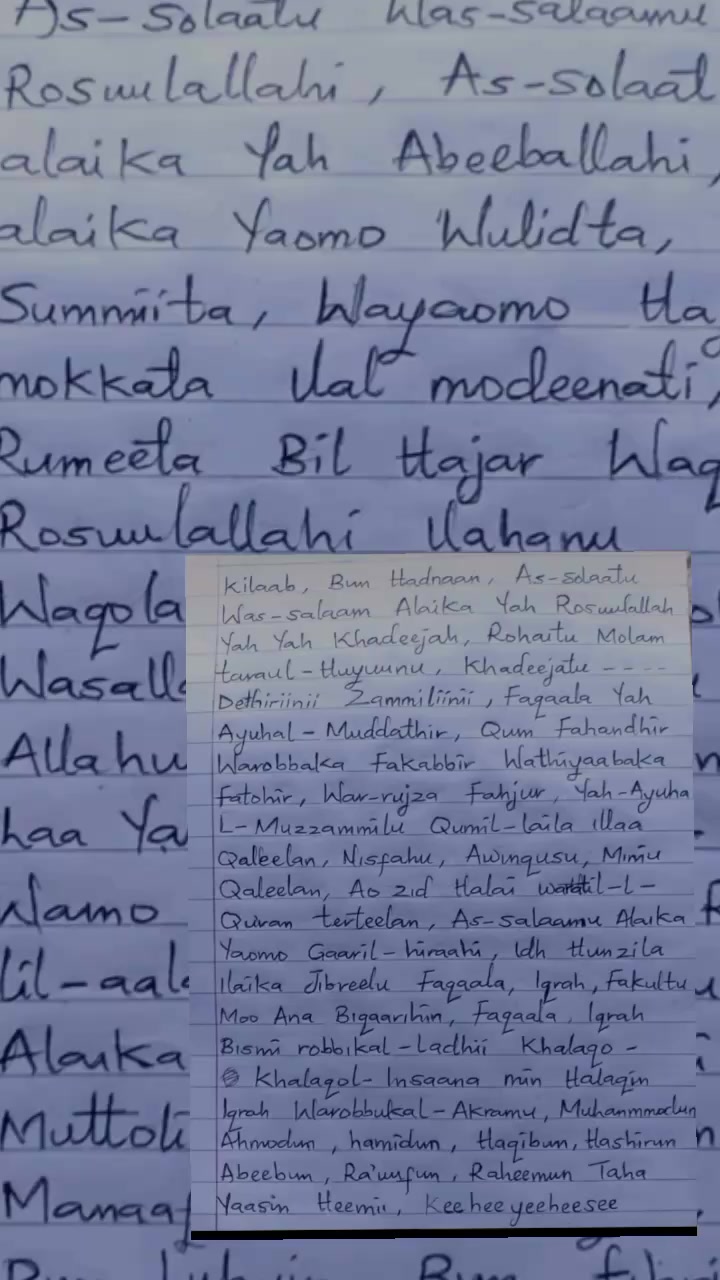 As-Solaatu Was-Salaamu
Rosuulallahi, As-Solaat
alaika Yah Abeeballahi,
alaika Yaomo Wulidta,
Summiita, Wayaomo Ha
mokkata Ual modeenati,
Rumeeta Bil Hajar Waq
Rosuulallahi Uahanu
Waqola
Wasalla
Allahu
haa Ya
Wamo
lil-aala
Alaika
Muttoli
Manaaf
Kilaab, Bun Hadnaan, As-solaatu
Was-salaam Alaika Yah Rosuulallah
Yah Yah Khadeejah, Rohaitu Molam
taraul-Huyuunu, Khadeejatu ----
Dethiriinii Zammiliinii, Faqaala Yah
Ayuhal-Muddathir, Qum Fahandhir
Warobbaka Fakabbir Wathiyaabaka
fatohir, War-rujza Fahjur, Yah-Ayuha
L-Muzzammilu Qumil-laila illaa
Qaleelan, Nisfahu, Awinqusu, Minhu
Qaleelan, Ao zid Halai
Quran terteelan, As-salaamu Alaika
Yaomo Gaaril-hiraahi, Idh Hunzila
Ilaika Jibreelu Faqaala, Iqrah, Fakultu
Moo Ana Biqaarihin, Faqaala, Iqrah
Bismi robbikal-Ladhii Khalaqo -
Khalaqol-Insaana min Halaqin
Iqrah Warobbukal-Akramu, Muhanmmadun
Ahmodun, hamidun, Haqibun, Hashirun
Abeebun, Ra'uufun, Raheemun Taha
Yaasin Heemii, Keeheeyeeheesee